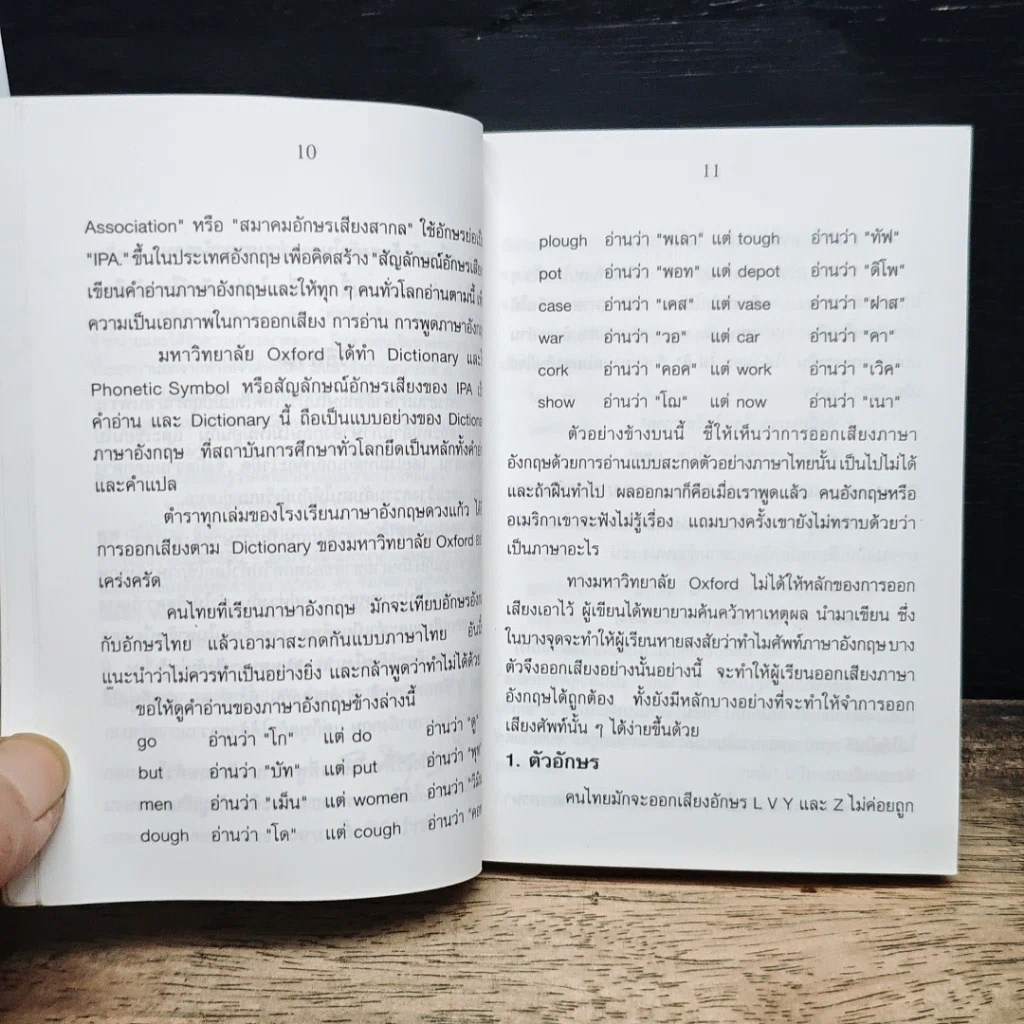 10
Association" หรือ "สมาคมอักษรเสียงสากล" ใช้อักษรย่อ
"IPA." ขึ้นในประเทศอังกฤษ เพื่อคิดสร้าง "สัญลักษณ์อักษร
เขียนคำอ่านภาษาอังกฤษและให้ทุก ๆ คนทั่วโลกอ่านตามนี้
ความเป็นเอกภาพในการออกเสียง การอ่าน การพูดภาษา
มหาวิทยาลัย Oxford ได้ทำ Dictionary
Phonetic Symbol หรือสัญลักษณ์อักษรเสียงของ IPA
คำอ่าน และ Dictionary นี้ ถือเป็นแบบอย่างของ
ภาษาอังกฤษ ที่สถาบันการศึกษาทั่วโลกยึดเป็นหลักทั้ง
และคำแปล
ตำราทุกเล่มของโรงเรียนภาษาอังกฤษดวงแก้ว
การออกเสียงตาม Dictionary ของมหาวิทยาลัย Oxford
เคร่งครัด
คนไทยที่เรียนภาษาอังกฤษ มักจะเทียบอักษร
กับอักษรไทย แล้วเอามาสะกดกันแบบภาษาไทย
แนะนำว่าไม่ควรทำเป็นอย่างยิ่ง และกล้าพูดว่าทำไม่ได้ด้วย
ขอให้ดูคำอ่านของภาษาอังกฤษข้างล่างนี้
go อ่านว่า "โก" แต่ do อ่านว่า "ดู"
but อ่านว่า "บัท" แต่ put อ่านว่า
men อ่านว่า "เม็น" แต่ women อ่านว่า
dough อ่านว่า "โด" แต่ cough อ่านว่า
11
plough อ่านว่า "พเลา" แต่ tough อ่านว่า "ทัฟ"
pot อ่านว่า "พอท" แต่ depot อ่านว่า "ดิโพ"
case อ่านว่า "เคส" แต่ vase อ่านว่า "ฝาส"
war อ่านว่า "วอ" แต่ car อ่านว่า "คา"
cork อ่านว่า "คอค" แต่ work อ่านว่า "เวิค"
show อ่านว่า "โฌ" แต่ now อ่านว่า "เนา"
ตัวอย่างข้างบนนี้ ชี้ให้เห็นว่าการออกเสียงภาษา
อังกฤษด้วยการอ่านแบบสะกดตัวอย่างภาษาไทยนั้น เป็นไปไม่ได้
และถ้าฝืนทำไป ผลออกมาก็คือเมื่อเราพูดแล้ว คนอังกฤษหรือ
อเมริกาเขาจะฟังไม่รู้เรื่อง แถมบางครั้งเขายังไม่ทราบด้วยว่า
เป็นภาษาอะไร
ทางมหาวิทยาลัย Oxford ไม่ได้ให้หลักของการออก
เสียงเอาไว้ ผู้เขียนได้พยายามค้นคว้าหาเหตุผล นำมาเขียน ซึ่ง
ในบางจุดจะทำให้ผู้เรียนหายสงสัยว่าทำไมศัพท์ภาษาอังกฤษ บาง
ตัวจึงออกเสียงอย่างนั้นอย่างนี้ จะทำให้ผู้เรียนออกเสียงภาษา
อังกฤษได้ถูกต้อง ทั้งยังมีหลักบางอย่างที่จะทำให้จำการออก
เสียงศัพท์นั้น ๆ ได้ง่ายขึ้นด้วย
1. ตัวอักษร
คนไทยมักจะออกเสียงอักษร L V Y และ Z ไม่ค่อยถูก